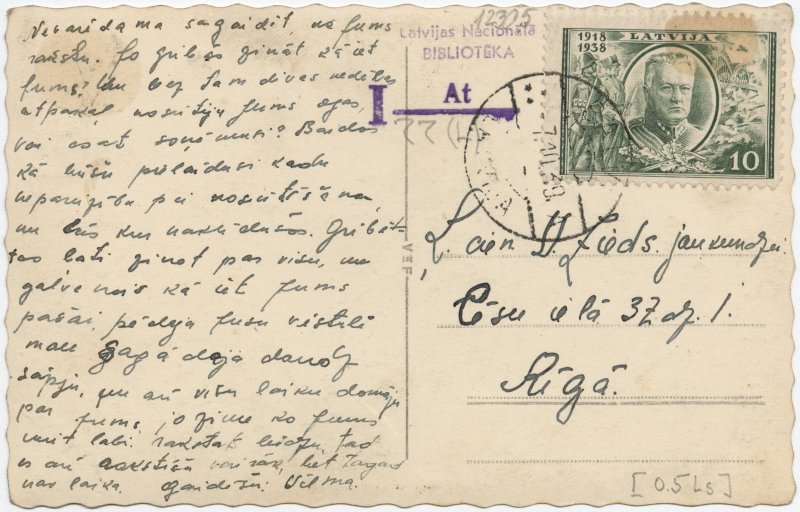 Nevarēdama sagaidīt, ka Jums
rakstu. Jo gribās zināt kā iet
Jums? Un bez tam divas nedeļas
atpakaļ nosūtiju Jums ogas,
vai esat saņēmusi? Baidos
kā būšu pielaidusi kādu
nepareizību pie nosūtīšanas,
un būs kur nokļūdušās. Gribē-
tos ļoti zinot par visu, un
galvenais kā iet Jums
pašai, pēdeja Jusu vēstulē
man sagādāja daudz
sāpju, un arī visu laiku domāju
par Jums, jo zinu ko Jums
rakstat biežu, tad
es arī rakstīšu vairāk, bet tagad
nav laika. gaidīšu. Vilma.
12305
Latvijas Nacionālā
BIBLIOTĒKA
At
22(4)
1918
1938
LATVIJA
10
LATVIJA
VEF
L. cien. Zieds jaunkundzei.
Cēsu ielā 37 dz. 1.
Rīgā.
[0.5 Ls]